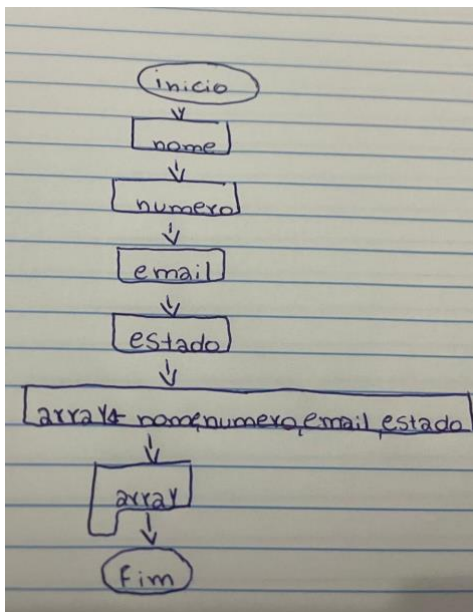 inicio
nome
numero
email
estado
array← nome,numero,email,estado
array
Fim